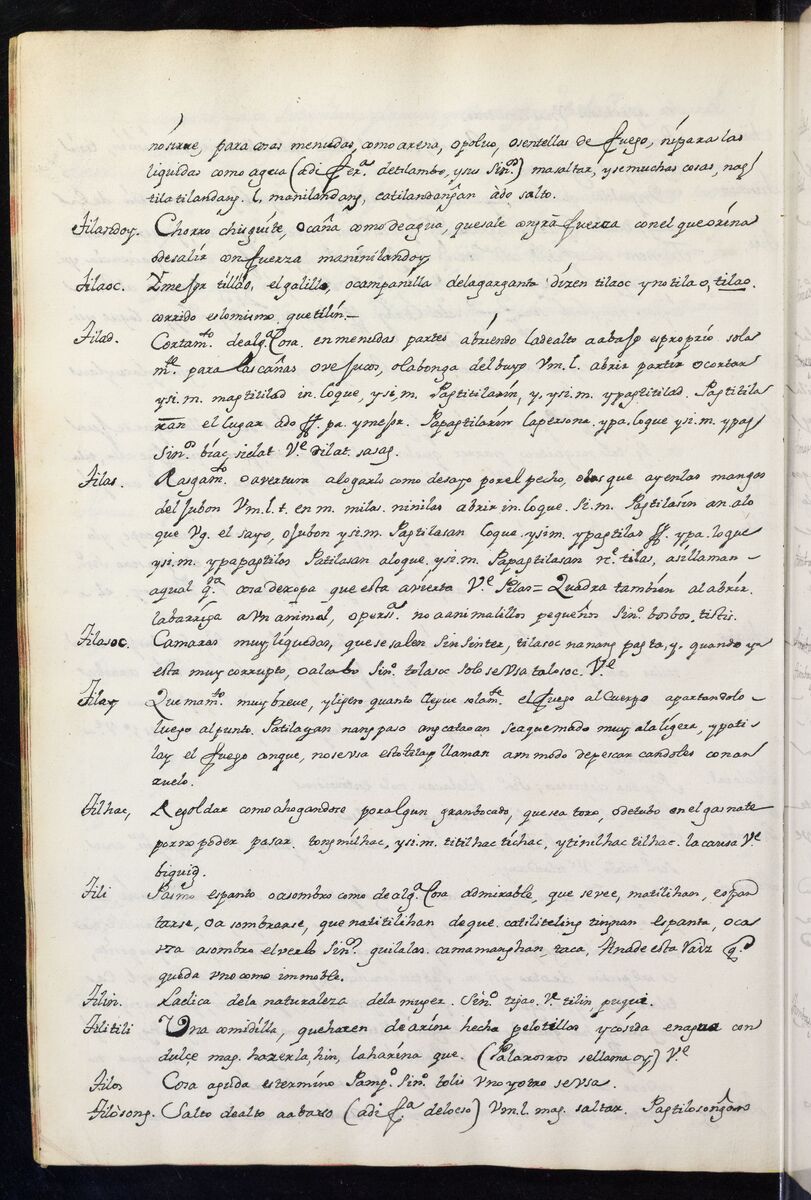 nósirve, para cosas menudas, como arena, opoluo, osentellas de fuego, nipara las
liquidas como agua (adi ferª. detilambo, ysus Sinº.) masaltar, ysemuchas cosas, nag
tilatilandang. l, manilandang, catilandangan ãdo salto.
Tilandoy. Chorro chisguite, ocaña comodeagua, quesale congrã fuerza con el queorina
odesalir con fuerza maninilandoy
Tilaoc. el galillo, ocampanilla delagarganta dizen tilaoc ynotilao, tilao.
corrido eslomismo, quetilin.
Tilad. Cortamto. dealgª. Cosa en menudas partes abriendo ladealto aabaso espropio sola
mte. para las cañas obejucos, olabonga del buyo Vm. l. abrir partir ocortar
ysi.m. magtitilad in. loque, ysi.m. Pagtitilarin, y, ysi.m. ypagtitilad. Pagtitila
ran el lugar ado pa. Papagtilarin lapersona ypa. loque ysi.m. ypag
Sinº. biac, sielat Ve. dilat. sasag.
Tilas. Rasgamto. oavertura alogarlo como desayo porel pecho, olas que ayenlas mangas
del jubon Vm. l. t. en m. milas. ninilas abrir in. loque. Si.m. Pagtilasin an. alo
que Vg. el sayo, ojubon ysi.m. Pagtilasan loque ysim. ypagtilas ypa. loque
ysi.m. ypapagtilas Patilasan aloque. ysi.m. Papagtilasan tilas, asillaman
aqual qª. cosa deropa que esta avierta Ve. Silas = Quadra tambien al abrir
labarriga aVn animal, opersª. no aanimalillos pequeños Sinº. bosbos, tistis.
Tilasoc. Camaras muy liquedas, quesesalen Sin Sinter, tilasoc nanang pagta, y, quando ya
esta muy corrupto, oalcabo Sinº. tolasoc solo se Vsa talosoc. Ve
Tilay Quemamto. muy breve, yligero quanto llegue solamte. el fuego al Cuerpo apartandolo
luego alpunto. Patilayan nang paso ang cataoan seaquemado muy alaligera, ypati
lay, el fuego conque, nosevsa estotilay llaman aVn modo depescar candoles conan
zuelo.
Tilhac, Regoldar como ahogandose poralgun granbocado, quesea toro, odetubo en el gasnate
porno poder pasar. tongmilhac, ysi.m. titilhac tichac, ytinilhac tilhac. la causa Ve
biguig.
Tili Pasmo espanto oasombro como de algª. Cosa admirable, que sevee, matilihan, espan
tarse, oa sombrarse, que natitilihan deque. catiliteling tingnan Espanta, oca
vsa asombro elverlo Sinº. guilalas. camamanghan, taca, Anade esta Vaiz qº.
queda vno como immoble.
Tilin. Ladica dela naturaleza dela muger. Sinº. tijac. Ve. tilin puqui.
Tilitili Una comidilla, quehazen de arina hecha pelotillas ycosida enagua con
dulçe mag. hazerla, hin, laharina que. (Palaxoixos sellama oy) Ve
Tilos Cosa aguda estermino Pampº. Sinº. tolis vno yotro se vsa.
Tilosong. Salto dealto aabaxo (adi fª. deloeso) Vm. l. mag. saltar. Pagtilosongan